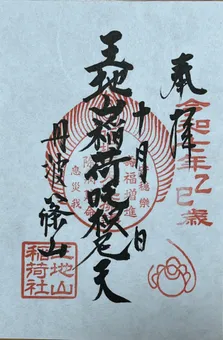 奉拝
令和七年乙巳歳
十月 日
王地山稲荷吒枳尼天
丹波篠山
王地山
稲荷社
福増進